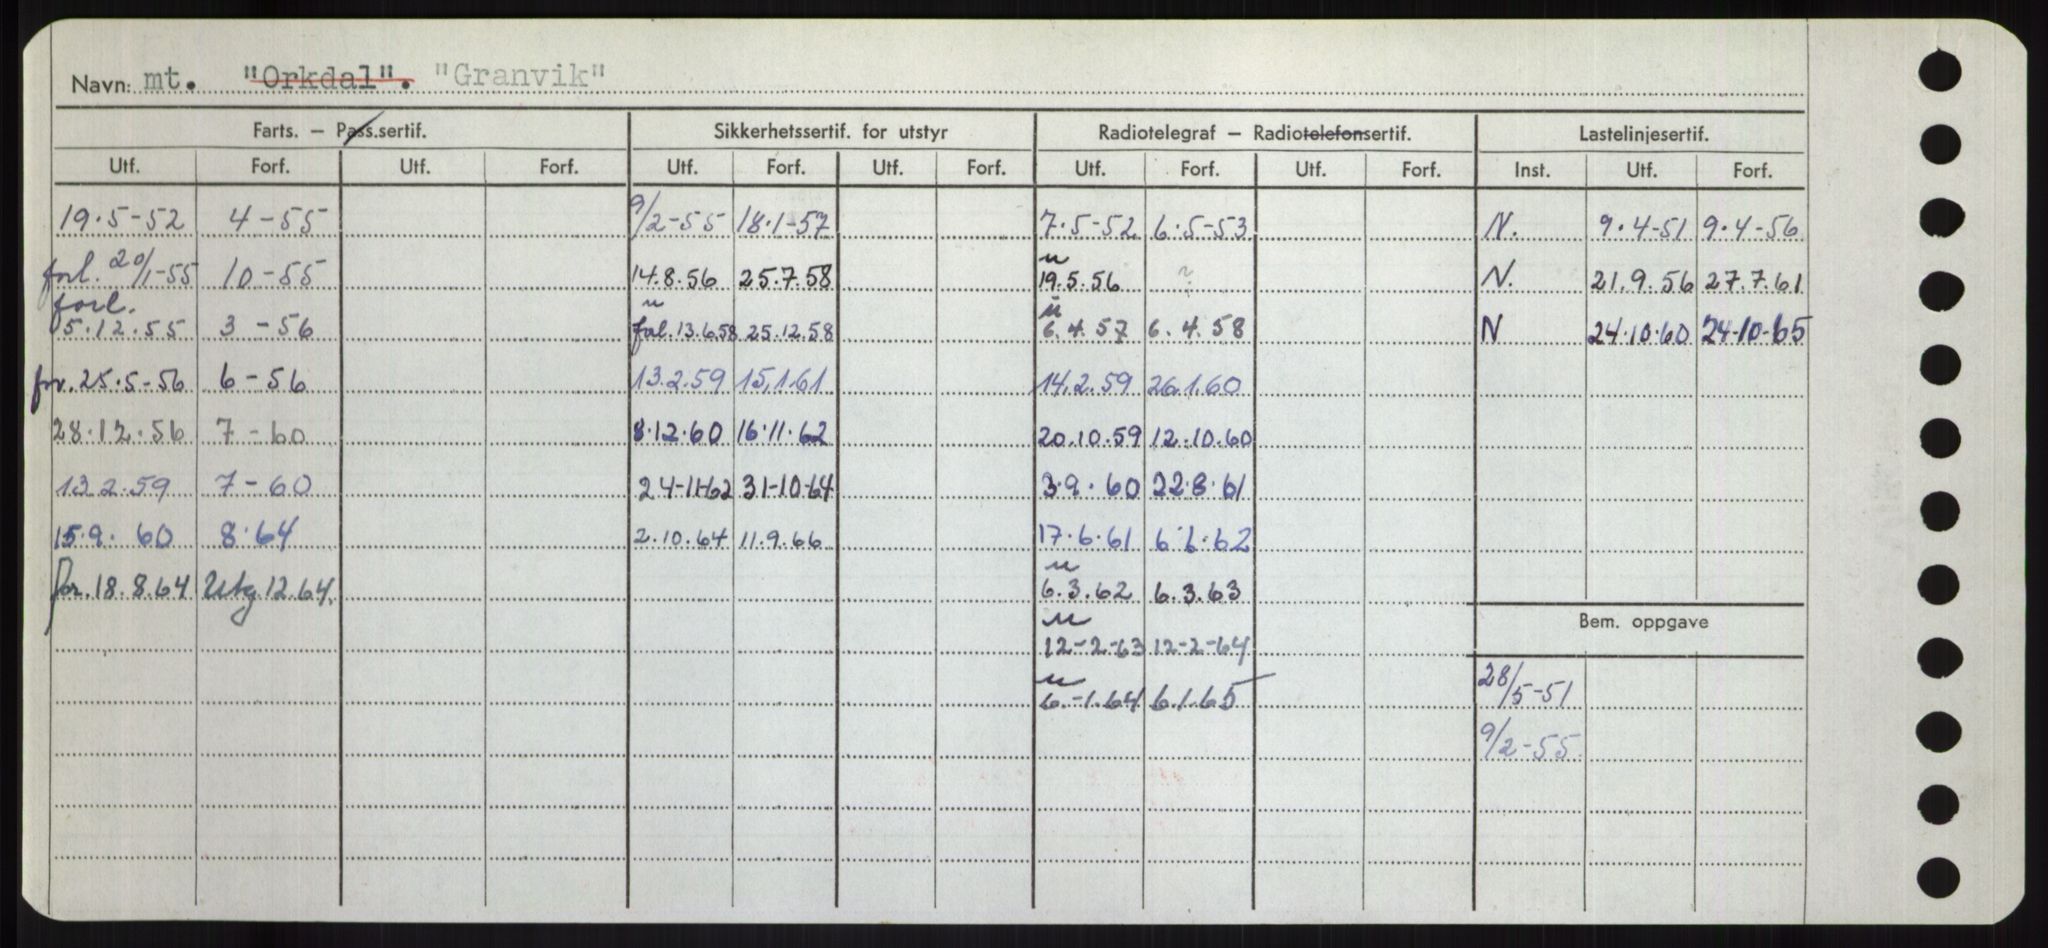 Navn: mt. "Orkdal". "Granvik"
Farts. – Pass.sertif. Sikkerhetssertif. for utstyr Radiotelegraf – Radiotelefonsertif. Lastelinjesertif.
Utf. Forf. Utf. Forf. Utf. Forf. Utf. Forf. Utf. Forf. Utf. Forf. Inst. Utf. Forf.
19.5-52 4-55 9/2-55 18.1-57 7.5-52 6.5-53 N. 9.4-51 9.4-56
forl. 20/1-55 10-55 14.8.56 25.7.58 19.5.56 N. 21.9.56 27.7.61
forl.
5.12.55 3-56 forl. 13.6.58 25.12.58 6.4.57 6.4.58 N 24.10.60 24-10-65
for. 25.5-56 6-56 13.2.59 15.1.61 14.2.59 26.1.60
28.12.56 7-60 8.12.60 16.11.62 20.10.59 12.10.60
13.2.59 7-60 24-11-62 31-10-64 3.9.60 22.8.61
15.9.60 8.64 2.10.64 11.9.66 17.6.61 6.6.62
for. 18.8.64 Utg. 12.64. 6.3.62 6.3.63
Bem. oppgave
12-2-63 12-2-64
28/5-51
6.-1.64 6.1.65
9/2-55.